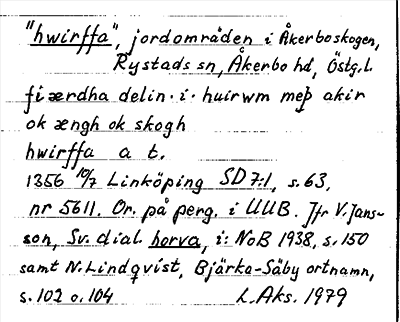 "hwirffa", jordområden i Åkerboskogen,
Rystads sn, Åkerbo hd, Östg.l.
fiærdha delin · i · huirwm meþ akir
ok ængh ok skogh
hwirffa a t.
1356 10/7 Linköping SD 7:1, s. 63,
nr 5611. Or. på perg. i UUB. Jfr V. Jans-
son, Sv. dial. horva, i: NoB 1938, s. 150
samt N. Lindqvist, Bjärka-Säby ortnamn,
s. 102 o. 104 L. Aks. 1979